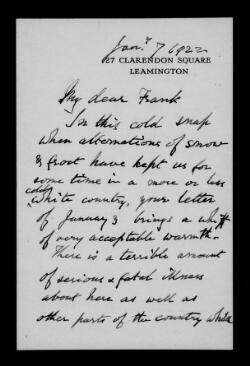 Jan. 7 1922
27 CLARENDON SQUARE
LEAMINGTON
My dear Frank
In this cold snap
when alternations of snow
& frost have kept us for
some time in a more or less
white country, your letter
of January 3 brings a whiff
of very acceptable warmth.
There is a terrible amount
of serious & fatal illness
about here as well as
other parts of the country